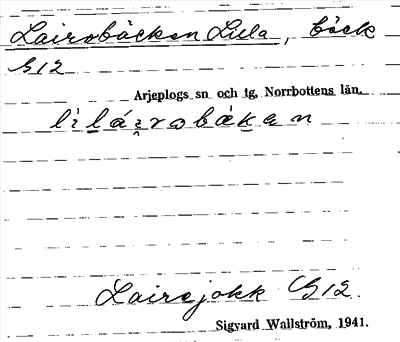 Lairobäcken Lilla, bäck
G12
Arjeplogs sn och tg, Norrbottens län.
Lairojokk G12.
Sigvard Wallström, 1941.